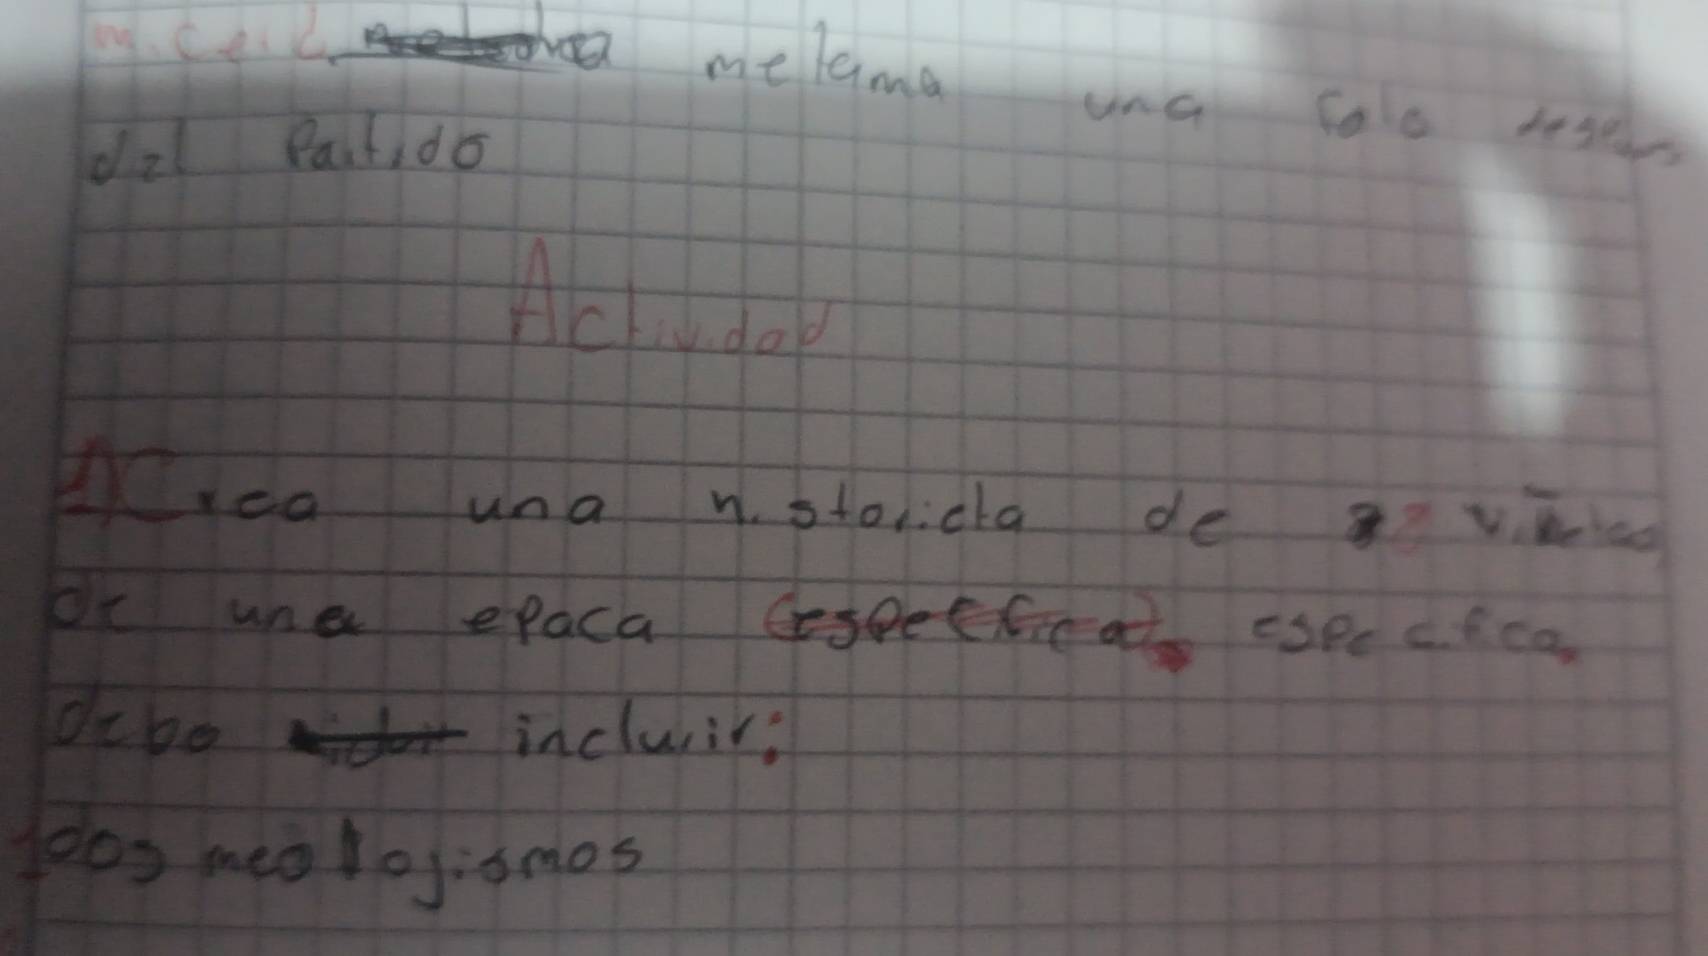 melama una solo
del Partido
Actividad
Crea una historicta de 8
de una epaca (especfica) especfica.
debo incluir:
1 dos meologismos